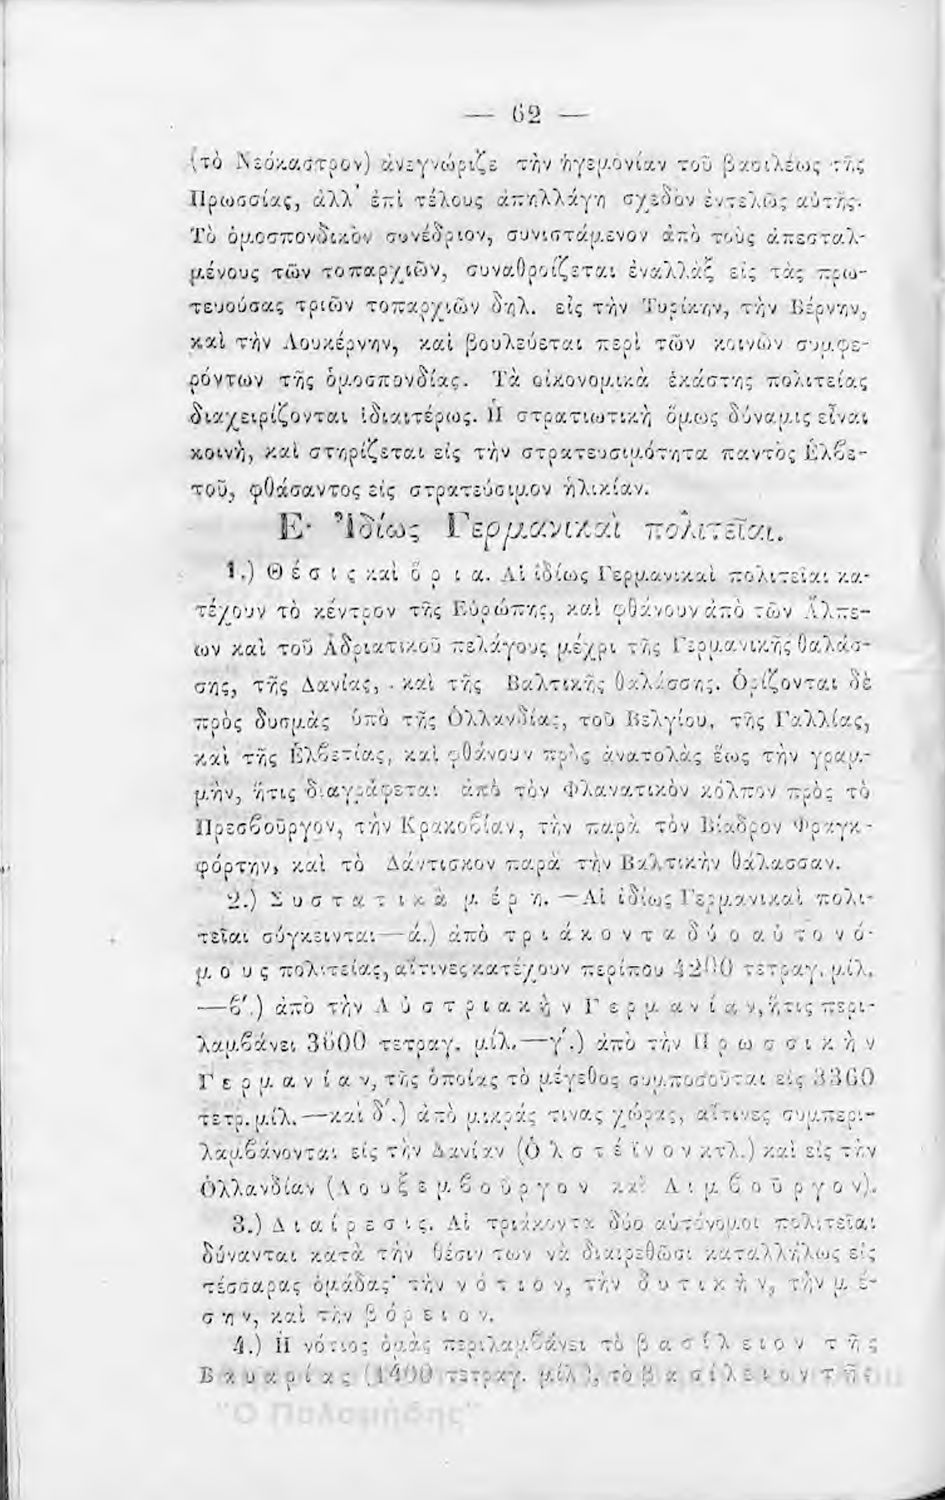 — 62 —
(τὸ Νεόκαστρον) ἀνεγνώριζε τὴν ἡγεμονίαν τοῦ βασιλέως τῆς
Πρωσσίας, ἀλλ' ἐπὶ τέλους ἀπηλλάγη σχεδὸν ἐντελῶς αὐτῆς.
Τὸ ὁμοσπονδικὸν συνέδριον, συνιστάμενον ἀπὸ τοὺς ἀπεσταλ-
μένους τῶν τοπαρχιῶν, συναθροίζεται ἐναλλὰξ εἰς τὰς πρω-
τευούσας τριῶν τοπαρχιῶν δηλ. εἰς τὴν Τυρίκην, τὴν Βέρνην,
καὶ τὴν Λουκέρνην, καὶ βουλεύεται περὶ τῶν κοινῶν συμφε-
ρόντων τῆς ὁμοσπονδίας. Τὰ οἰκονομικὰ ἑκάστης πολιτείας
διαχειρίζονται ἰδιαιτέρως. Ἡ στρατιωτικὴ ὅμως δύναμις εἶναι
κοινὴ, καὶ στηρίζεται εἰς τὴν στρατευσιμότητα παντὸς Ἑλβε-
τοῦ, φθάσαντος εἰς στρατεύσιμον ἡλικίαν.
Ε· Ἰδίως Γερμανικαὶ πολιτεῖαι.
1.) Θέσις καὶ ὅρια. Αἱ ἰδίως Γερμανικαὶ πολιτεῖαι κα-
τέχουν τὸ κέντρον τῆς Εὐρώπης, καὶ φθάνουν ἀπὸ τῶν Ἄλπε-
ων καὶ τοῦ Ἀδριατικοῦ πελάγους μέχρι τῆς Γερμανικῆς θαλάσ-
σης, τῆς Δανίας, καὶ τῆς Βαλτικῆς θαλάσσης. Ὁρίζονται δὲ
πρὸς δυσμὰς ὑπὸ τῆς Ὁλλανδίας, τοῦ Βελγίου, τῆς Γαλλίας,
καὶ τῆς Ἑλβετίας, καὶ φθάνουν πρὸς ἀνατολὰς ἕως τὴν γραμ-
μὴν, ἥτις διαγράφεται ἀπὸ τὸν Φλανατικὸν κόλπον πρὸς τὸ
Πρεσβοῦργον, τὴν Κρακοβίαν, τὴν παρὰ τὸν Βίαδρον Φραγκ-
φόρτην, καὶ τὸ Δάντισκον παρὰ τὴν Βαλτικὴν θάλασσαν.
2.) Συστατικὰ μέρη. —Αἱ ἰδίως Γερμανικαὶ πολι-
τεῖαι σύγκεινται—ά.) ἀπὸ τριάκοντα δύο αὐτονό-
μους πολιτείας, αἵτινες κατέχουν περίπου 4200 τετραγ. μίλ.
—β'.) ἀπὸ τὴν Αὐστριακὴν Γερμανίαν, ἥτις περι-
λαμβάνει 3600 τετραγ. μίλ.—γ'.) ἀπὸ τὴν Πρωσσικὴν
Γερμανίαν, τῆς ὁποίας τὸ μέγεθος συμποσοῦται εἰς 3360
τετρ. μίλ.—καὶ δ'.) ἀπὸ μικράς τινας χώρας, αἵτινες συμπερι-
λαμβάνονται εἰς τὴν Δανίαν (Ὁλστέϊνον κτλ.) καὶ εἰς τὴν
Ὁλλανδίαν (Λουξεμβοῦργον καὶ Λιμβοῦργον).
3.) Διαίρεσις. Αἱ τριάκοντα δύο αὐτόνομοι πολιτεῖαι
δύνανται κατὰ τὴν θέσιν των νὰ διαιρεθῶσι καταλλήλως εἰς
τέσσαρας ὁμάδας· τὴν νότιον, τὴν δυτικὴν, τὴν μέ-
σην, καὶ τὴν βόρειον.
4.) Ἡ νότιος ὁμὰς περιλαμβάνει τὸ βασίλειον τῆς
Βαυαρίας (1400 τετραγ. μίλ.), τὸ βασίλειον τῆς
"Ο Παλαμήδης"